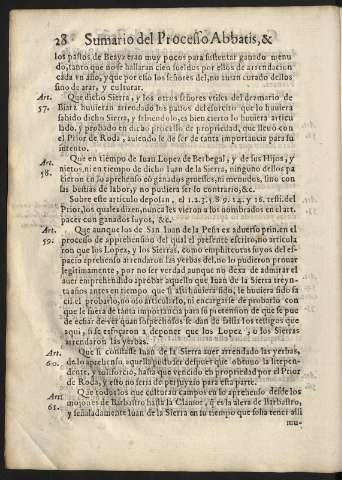 28 Sumario del Processo Abbatis, &
los pastos de Beaya eran muy pocos para sustentar ganado menu
do, tanto que no se hallaran cien sueldos por ellos de arrendacion
cada vn año, y que por esso los señores del, no auian curado dellos
sino de arar, y culturar.
Art. 57. Que dicho Sierra, y los otros señores vtiles del de
Biarz huuieran arrendado los pastos del si esto que lo huuiera
sabido dicho Sierra, y sabiendolo, es bien cierto lo huuiera articu
lado, y probado en dicho processo de propriedad, que lleuò con
el Prior de Roda, auiendo se de ser de tanta importancia para su
intento.
Art. 58. Que en tiempo de Iuan Lopez de Berbegal, y de sus Hijos, y
nietos, ni en tiempo de dicho Iuan de la Sierra, ninguno dellos pa
cieron en lo aprehenso cō ganados gruesses, ni menudos, sino con
las bestias de labor, y no pudiera ser lo contrario, &c.
Sobre este articulo depolan, el 1.2.3. 8. 9. 14. y 16. testi. del
Prior, los quales dizen, nunca les vieron a los nombrados en el art.
pacer con ganados suyos, &c.
Art. 59. Que aunque los de San Iuan de la Peña ex aduerso prin. en el
processo de aprehension del qual el presente es trito, no articula
ron que los Lopez, y los Sierras, como emphiteotas suyos del es-
pacio aprehenso arrendaran las yerbas del, no lo pudieron prouar
legitimamente, por no ser verdad aunque no dexa de admirar el
auer emprehendido aprobar aquello que Iuan de la Sierra treyn-
ta años antes en tiempo que si assi huuiera sido, le huuiera sido fa
cil el probarlo, no lo articularlo, ni encargarse de probarlo con
que le fuera de tanta importancia para su pretension de que se pue
de echar de ver quan sospechosos se dan de falsos los testigos que
aqui, si se esforçaron a deponer que los Lopez, y los Sierras
arrendaron las yerbas.
Art. 60. Que si constasse Iuan de la Sierra auer arrendado las yerbas,
de lo aprehenso, aquello pudo ser despues que obtuuo la litepen-
dente, y consorcio, hasta que vencido en propriedad por el Prior
de Roda, y esto no seria de perjuyzio para esta parte.
Art. 61. Que todos los que culturan campos en lo aprehenso desde los
mojones de Barbastro hasta la Clamor, q̃ es la alera de Barbastro,
y señaladamente Iuan de la Sierra en su tiempo que solia tener alli
mu-